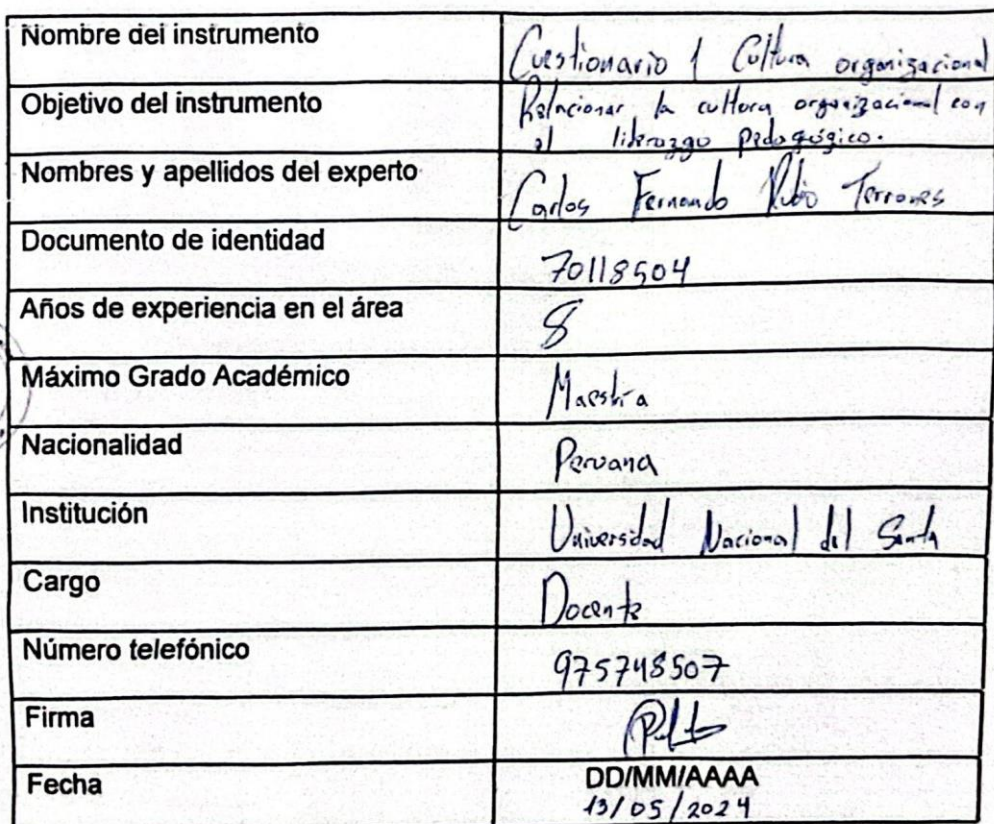 Nombre del instrumento
Cuestionario 1 Cultura organizacional
Objetivo del instrumento
Relacionar la cultura organizacional con
el liderazgo pedagógico.
Nombres y apellidos del experto
Carlos Fernando Rubio Terrones
Documento de identidad
70118504
Años de experiencia en el área
8
Máximo Grado Académico
Maestría
Nacionalidad
Peruana
Institución
Universidad Nacional del Santa
Cargo
Docente
Número telefónico
975748507
Firma
Fecha
DD/MM/AAAA
13/05/2024